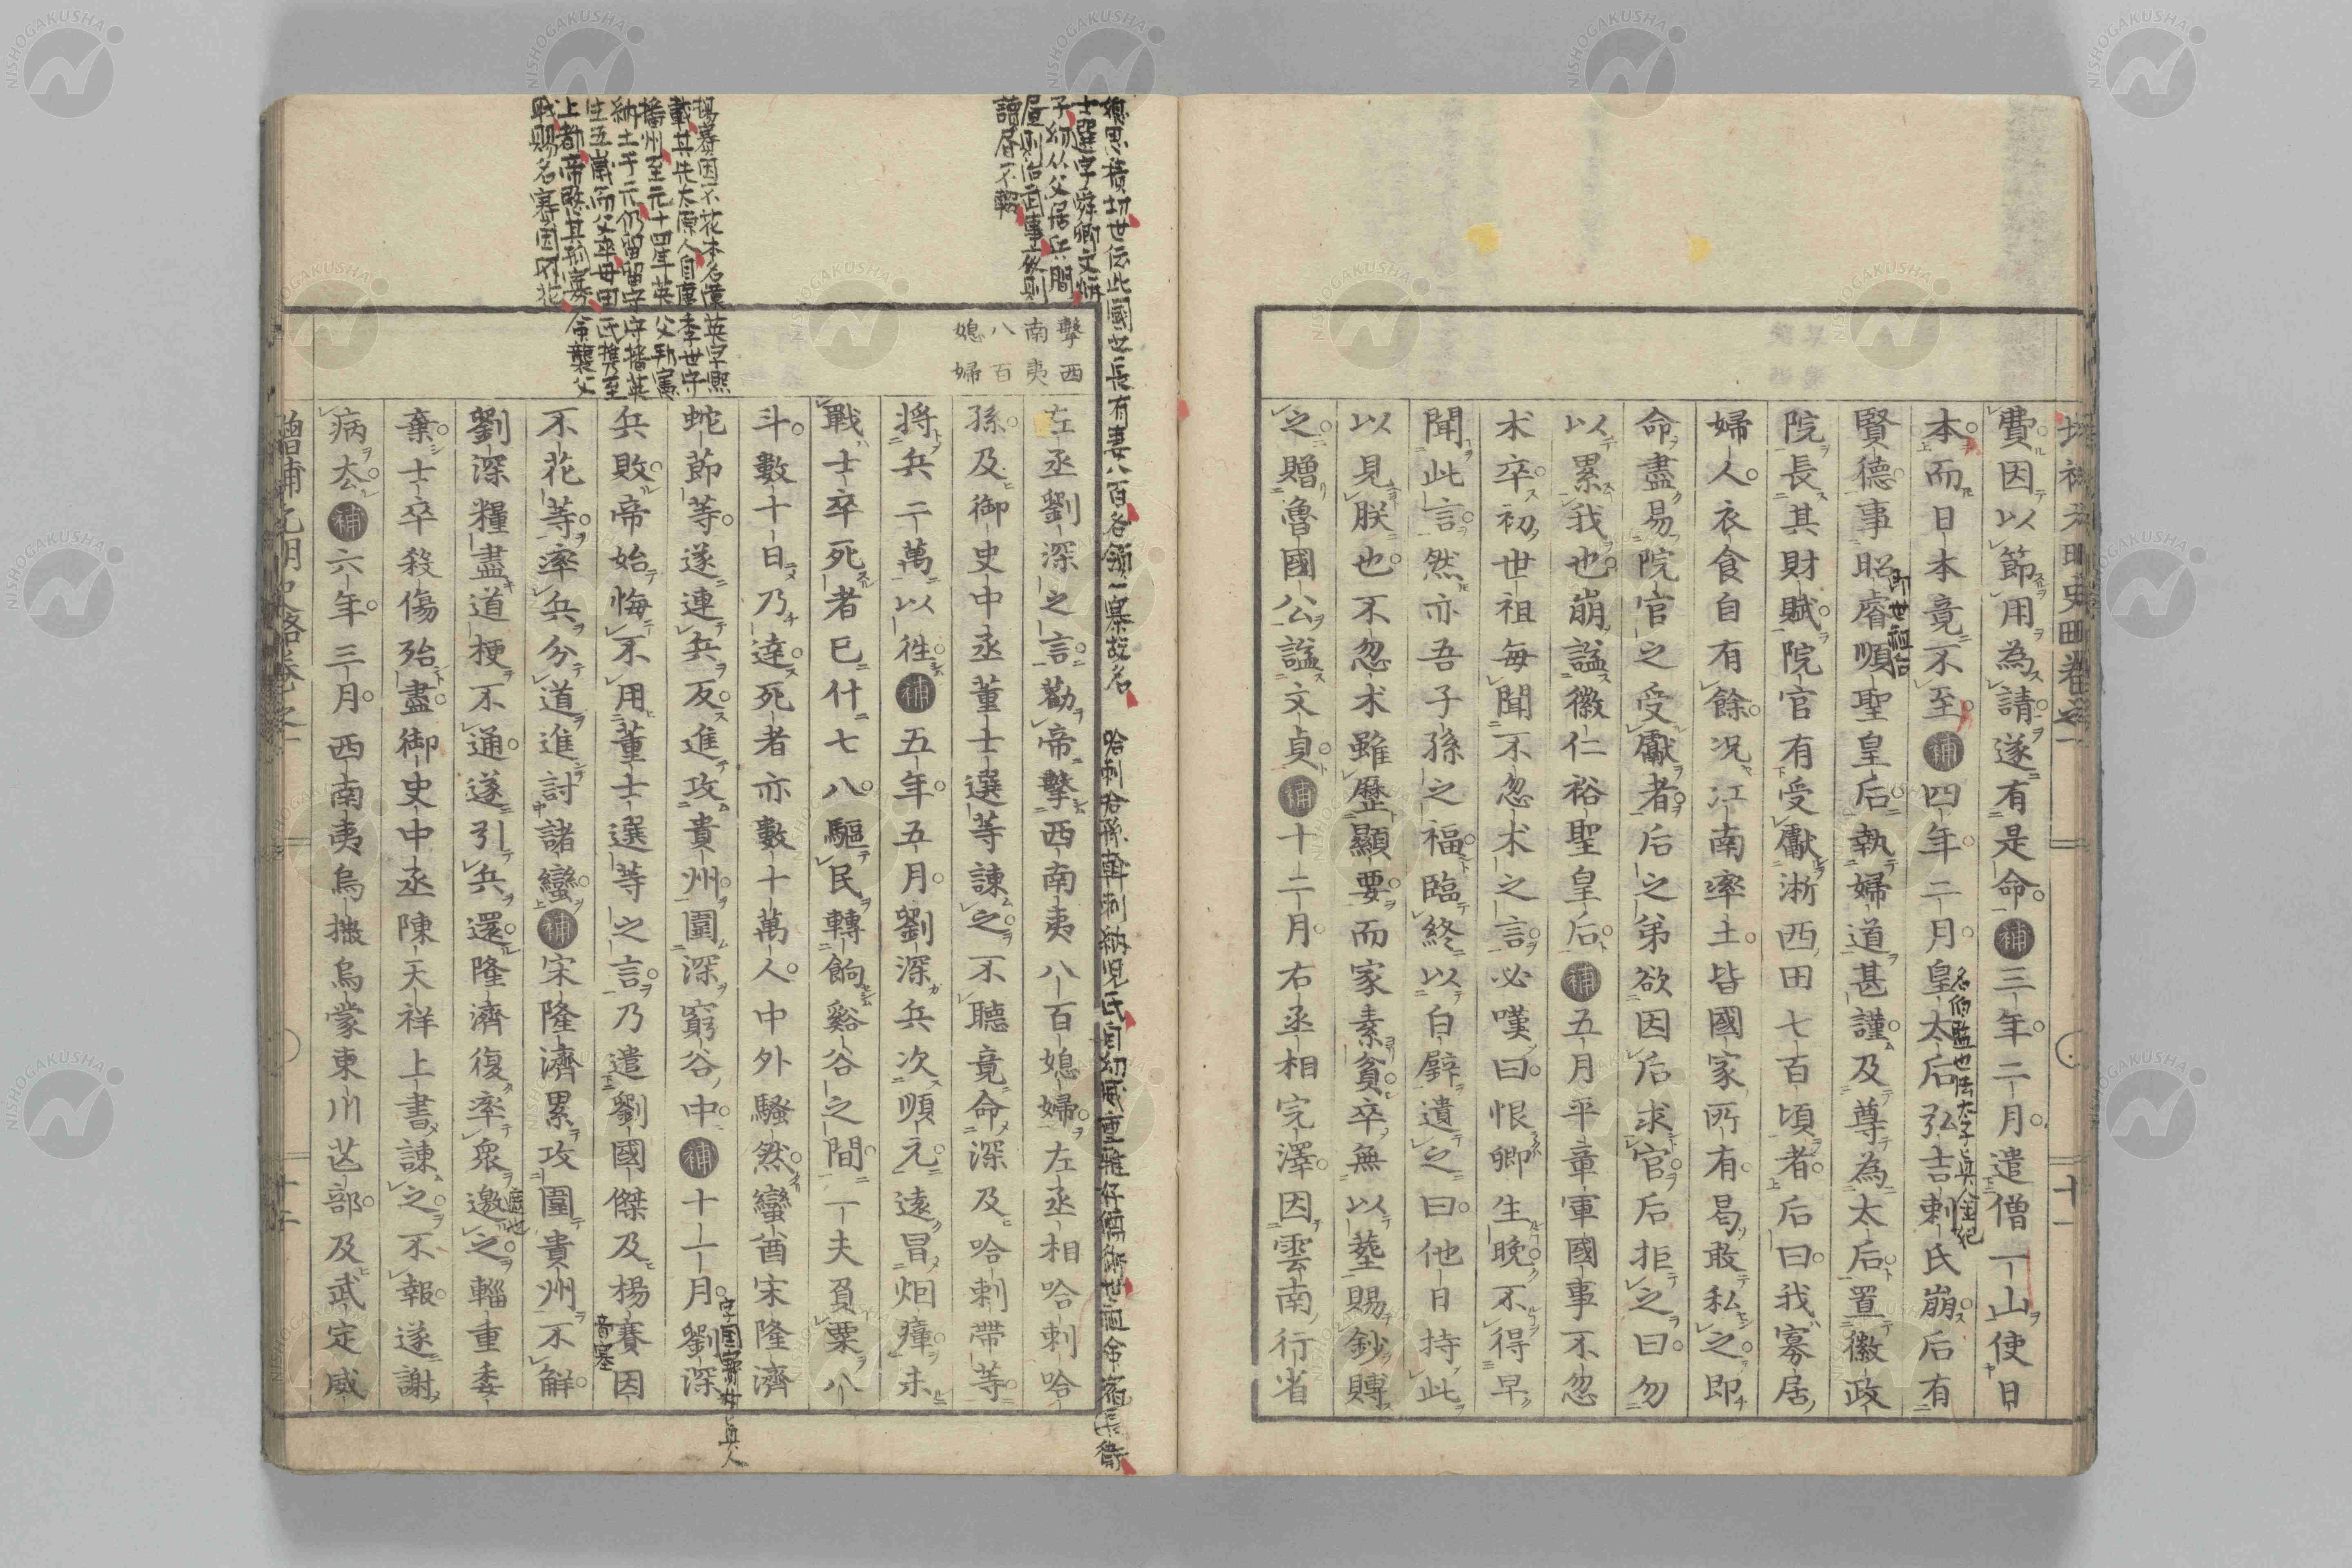 費因以節用為請遂有是命補三年二月遣僧一山使日
本而日本竟不至補四年二月皇太后弘吉剌氏崩后有
賢德事昭睿順聖皇后執婦道甚謹及尊為太后置徽政
院長其財賦院官有受獻浙西田七百頃者后曰我寡居
婦人衣食自有餘况江南率土皆國家所有曷敢私之即
命盡易院官之受獻者后之弟欲因后求官后拒之曰勿
以累我也崩謚徽仁裕聖皇后補五月平章軍國事不忽
木卒初世祖每聞不忽木之言必嘆曰恨卿生晚不得早
聞此言然亦吾子孫之福臨終以白璧遺之曰他日持此
以見朕也不忽木雖歷顯要而家素貧卒無以葬賜鈔賻
之贈魯國公謚文貞補十二月右丞相完澤因雲南行省
擊西
南夷
八百
媳婦
左丞劉深之言勸帝擊西南夷八百媳婦左丞相哈剌哈
孫及御史中丞董士選等諫之不聽竟命深及哈剌帶等
将兵二萬以徃補五年五月劉深兵次順元遠冒烟瘴未
戰士卒死者已什七八驅民轉餉谿谷之間一夫負粟八
斗數十日乃達死者亦數十萬人中外騷然蠻酋宋隆濟
蛇節等遂連兵反進攻貴州圍深窮谷中補十一月劉深
兵敗帝始悔不用董士選等之言乃遣劉國傑及楊賽因
不花等率兵分道進討諸蠻補宋隆濟累攻圍貴州不解
劉深糧盡道梗不通遂引兵還隆濟復率衆邀之輜重委
棄士卒殺傷殆盡御史中丞陳天祥上書諫之不報遂謝
病去補六年三月西南夷烏撒烏蒙東川芒部及武定威